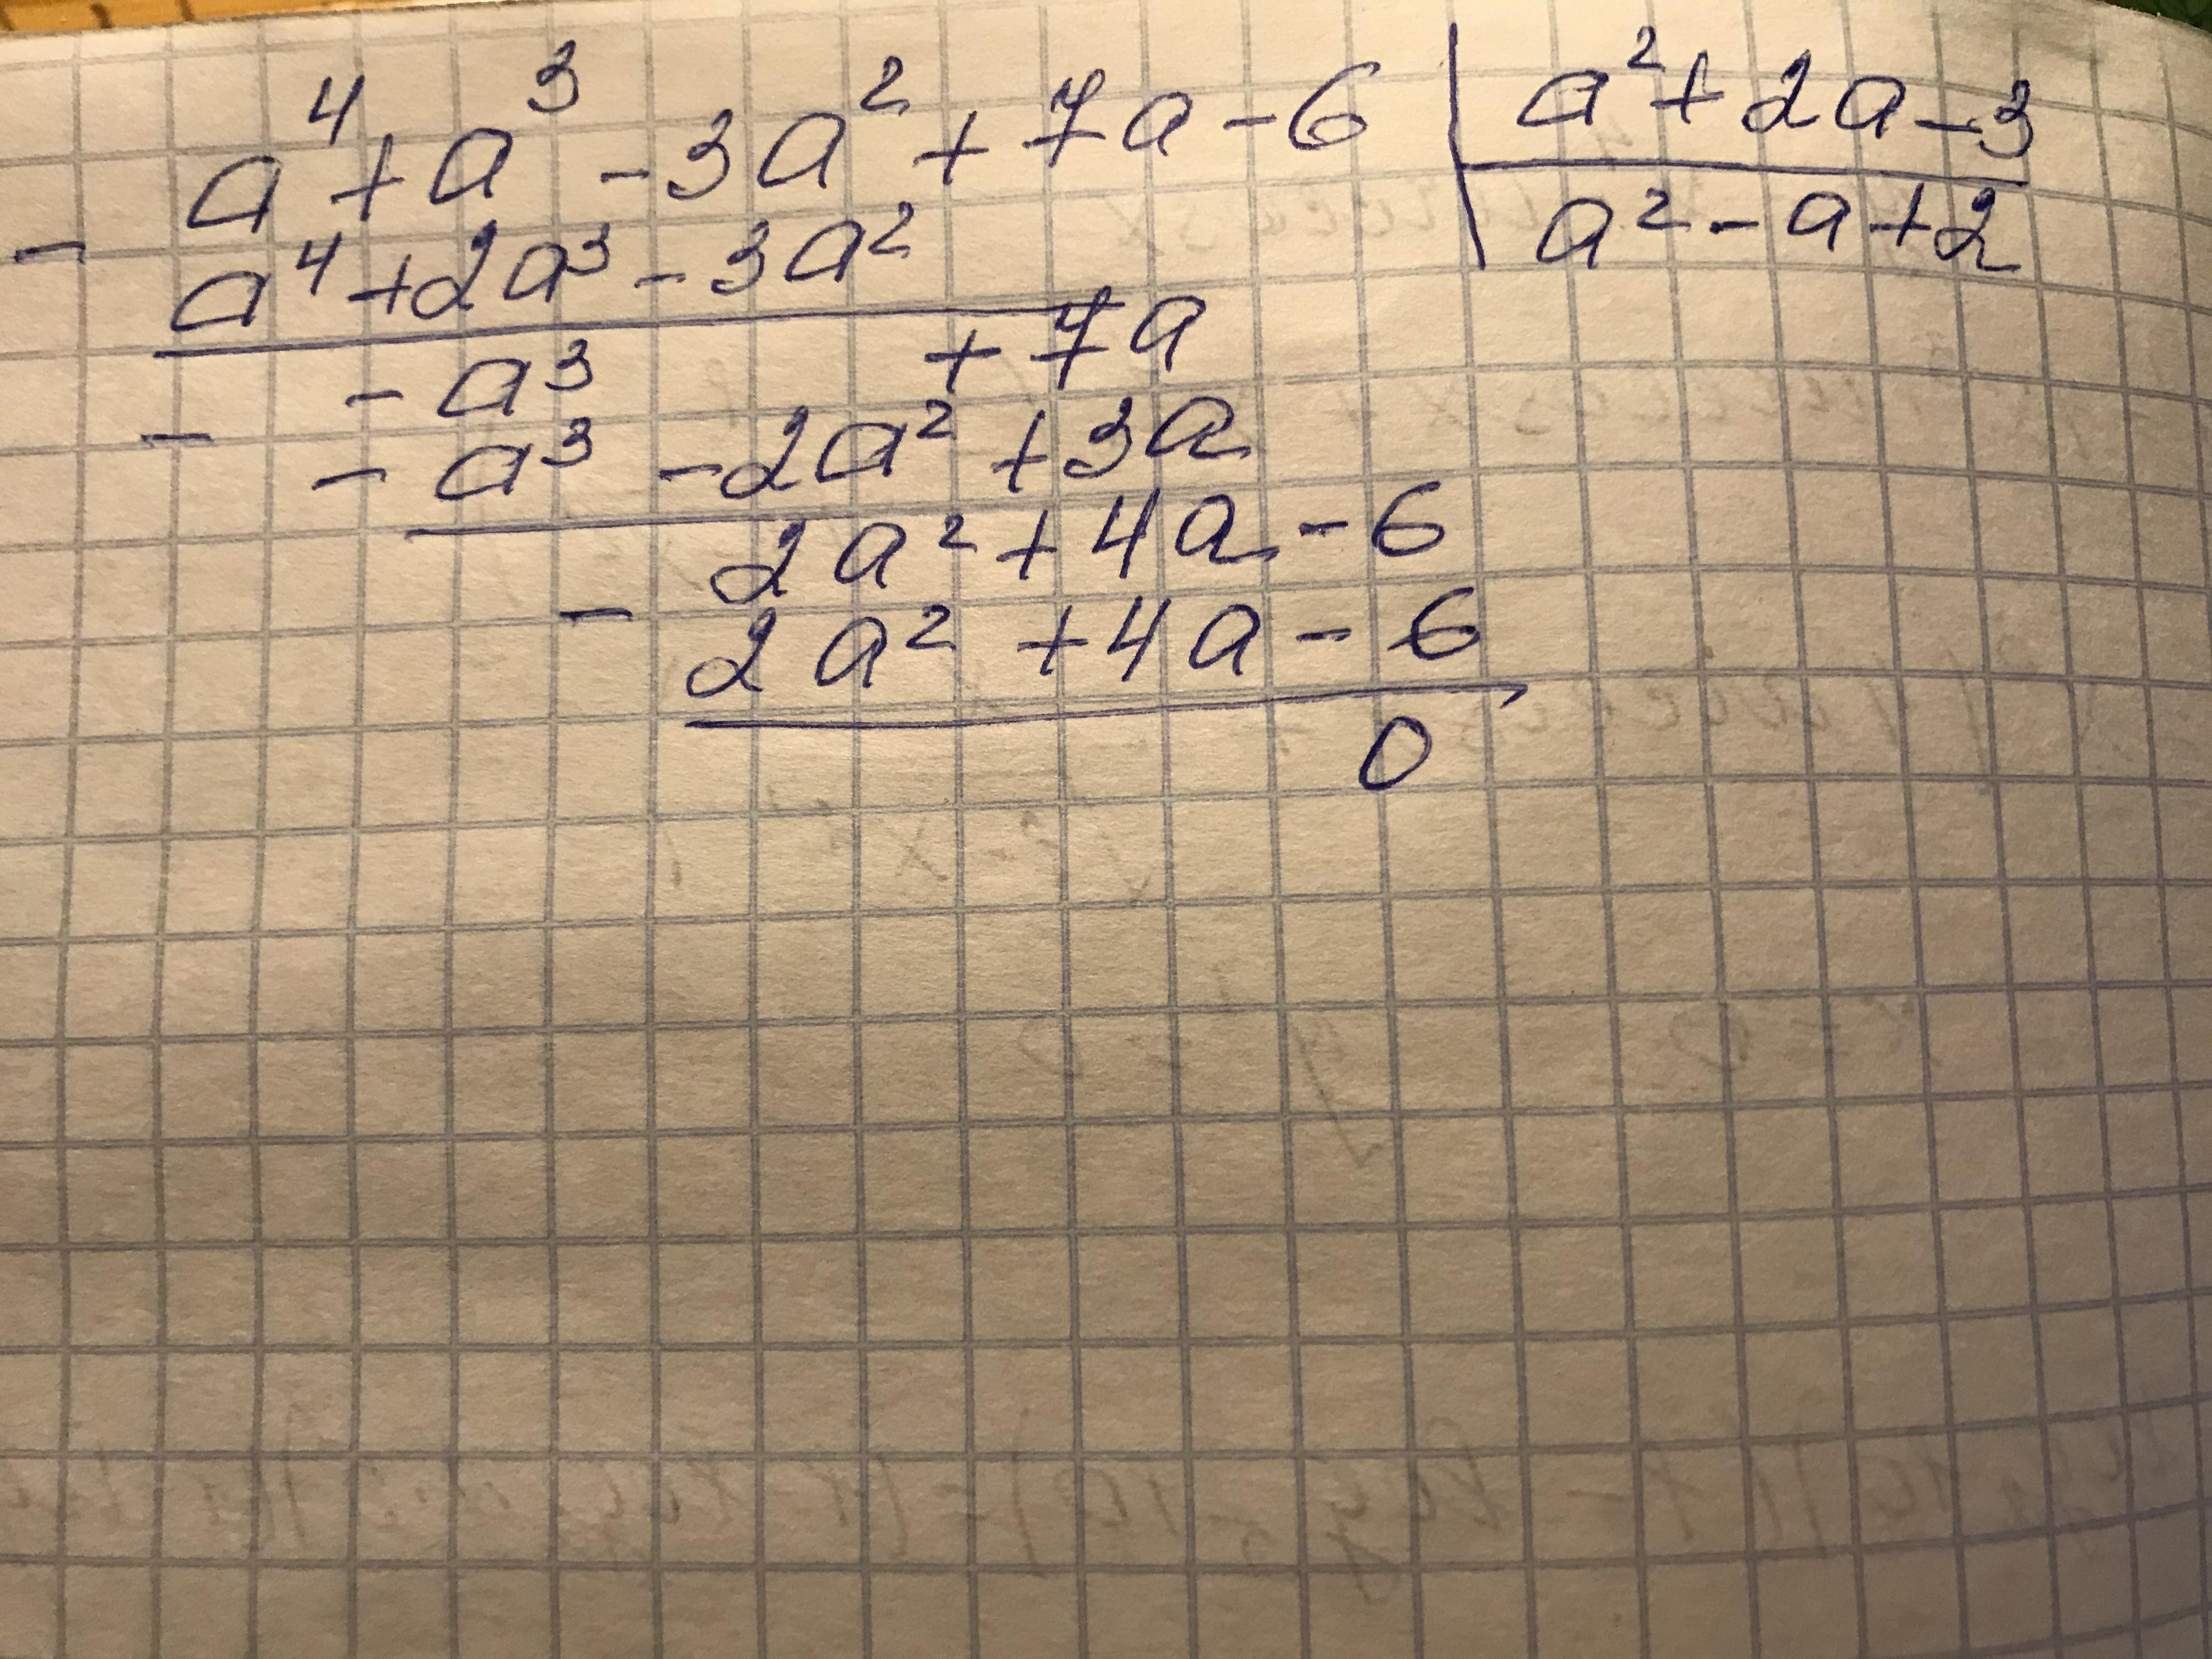 a⁴ + a³ - 3a² + 7a - 6 | a² + 2a - 3
- a⁴ + 2a³ - 3a² | a² - a + 2
- a³ + 7a
- - a³ - 2a² + 3a
2a² + 4a - 6
- 2a² + 4a - 6
0